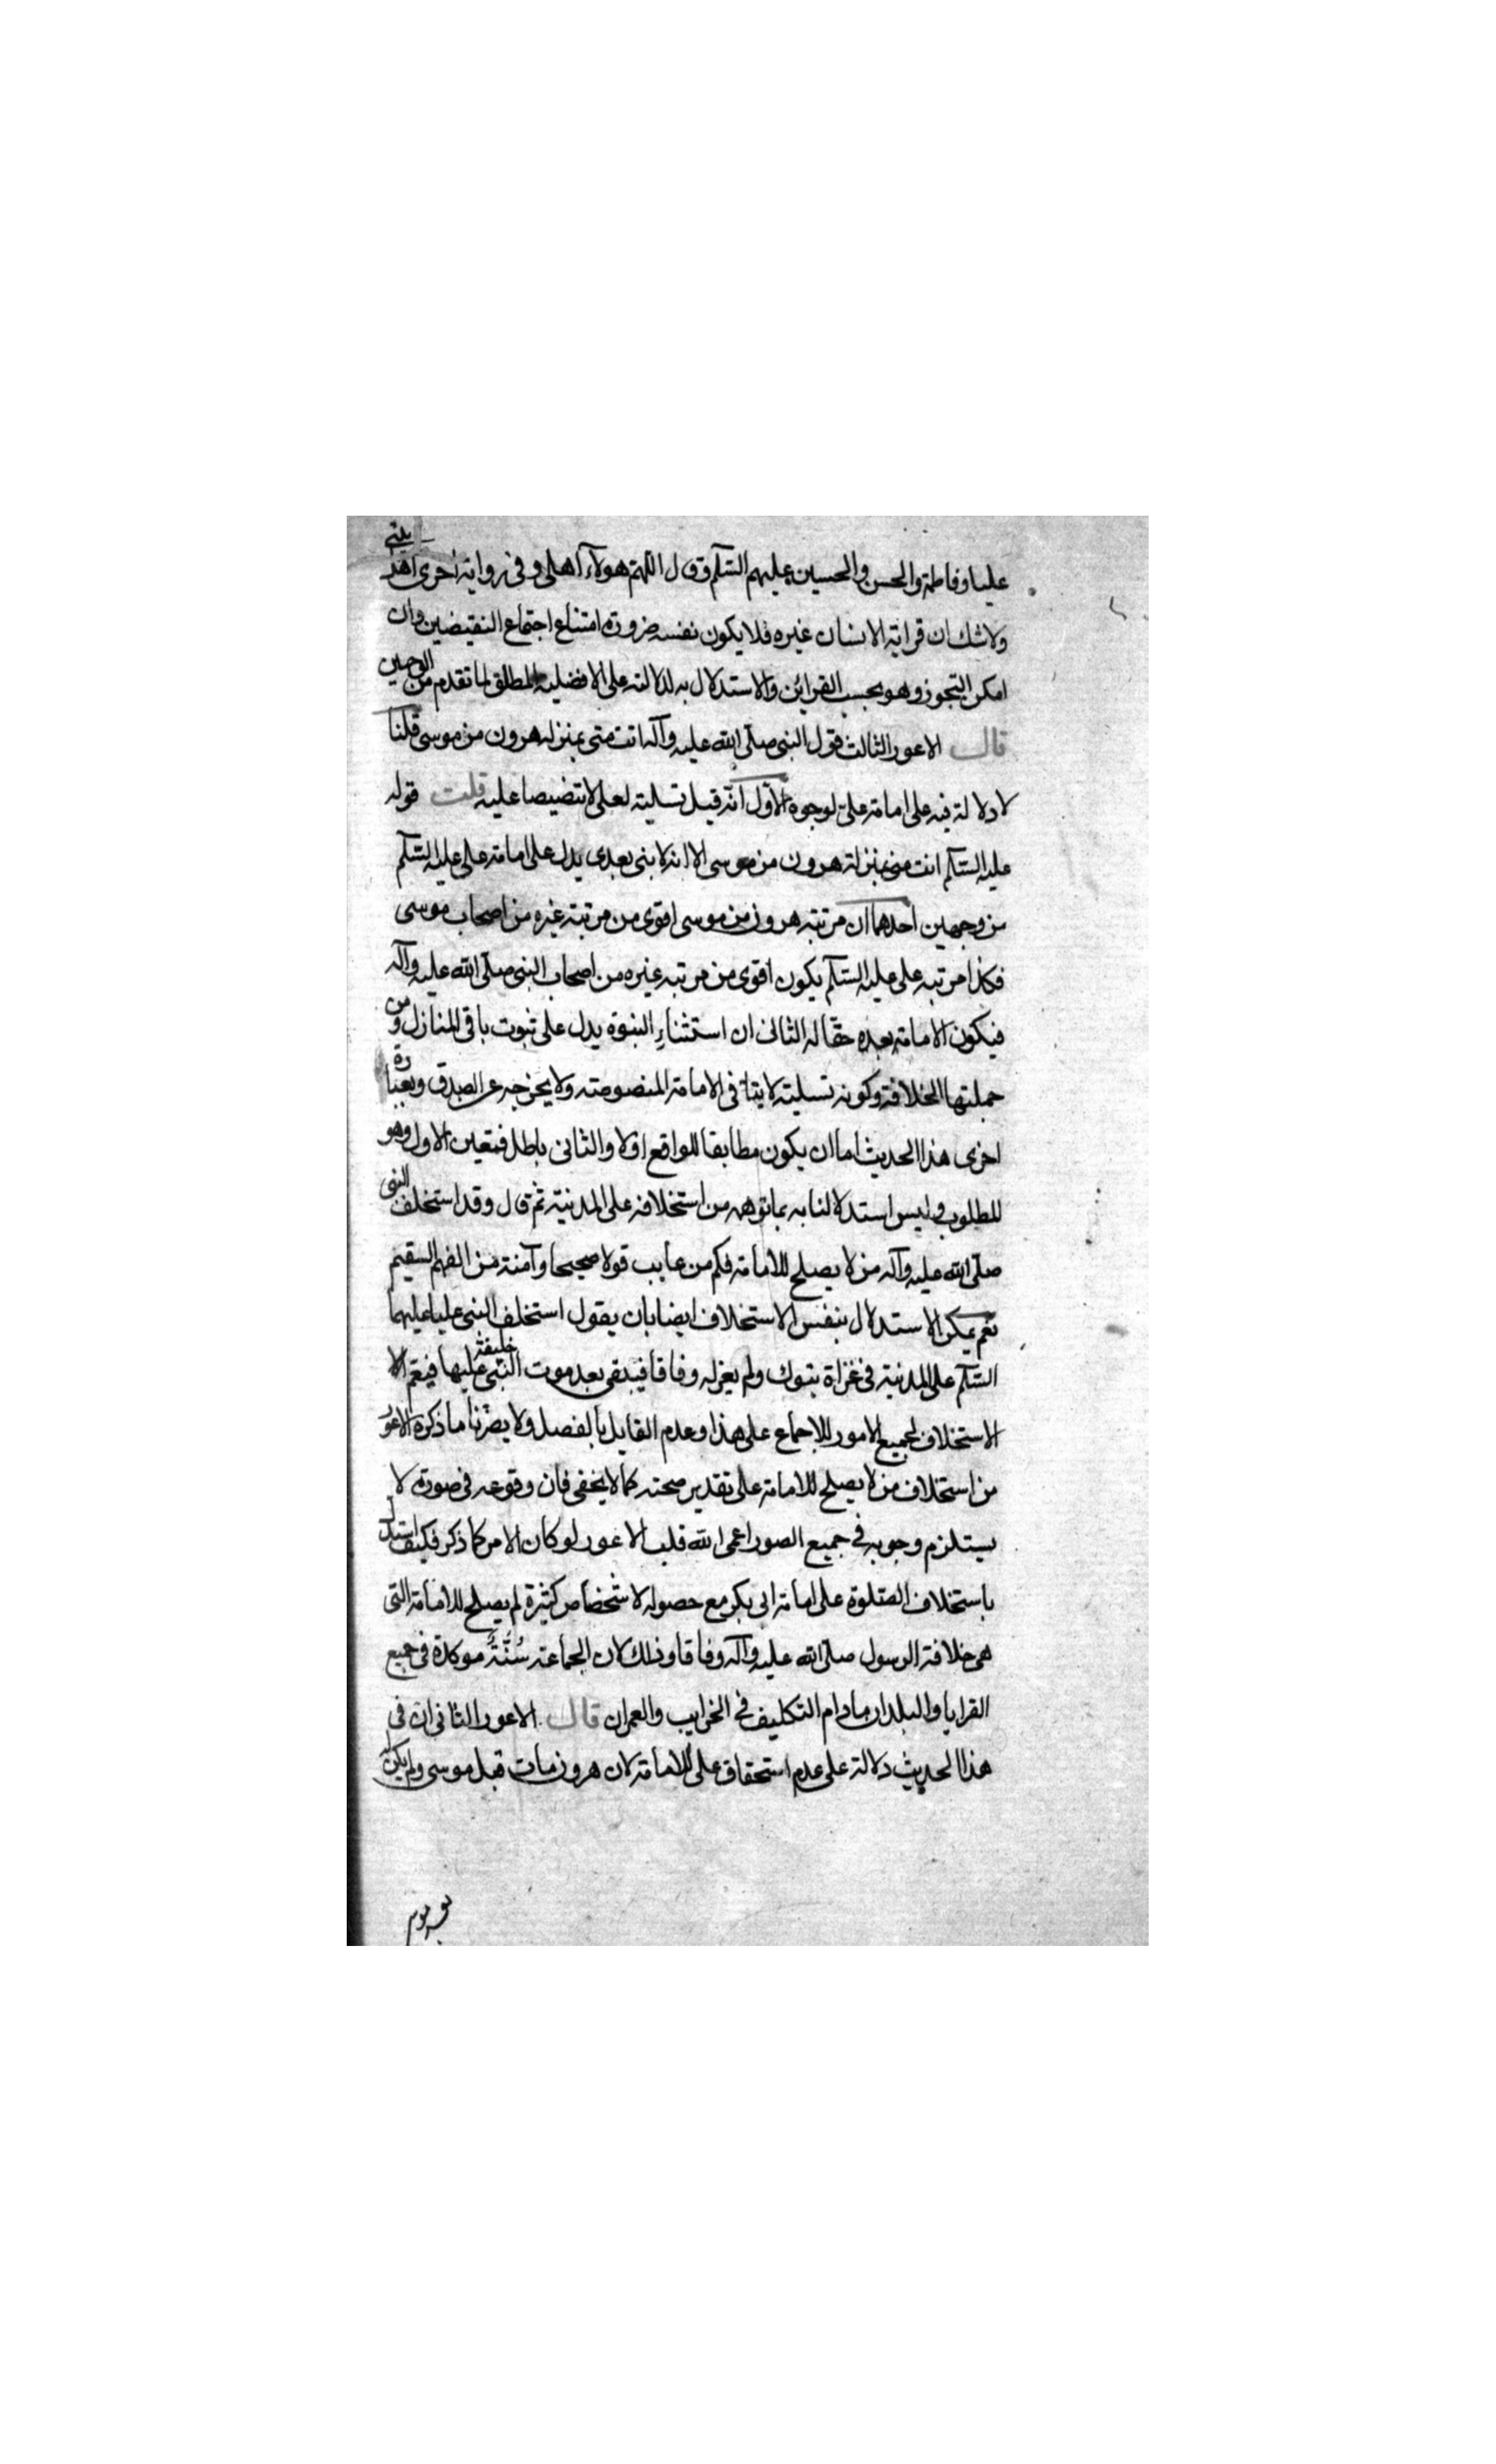 عليا وفاطمة والحسن والحسين عليهم السّلم وقال اللّهم هولاء اهلى وفى رواية اخرى اهل بيتى
ولا شك ان قرابة الانسان غيره فلا يكون نفسه ضرورة امتناع اجتماع النقيضين وان
امكن التجوز وهو بحسب القرائن والاستدلال به لدلالته على الافضلية المطلق لما تقدم من الوجهين
قال الاعور الثالث قول النبى صلّى الله عليه وآله انت منى بمنزلة هرون من موسى قلنا
لا دلالة فيه على امامة علىّ لوجوه الاوّل انّه قيل تسلية لعلى لا تنصيصا عليه قلت قوله
عليه السّلم انت منى بمنزلة هرون من موسى الا انه لا نبى بعدى يدل على امامة على عليه السّلم
من وجهين احدهما ان مرتبة هرون من موسى اقوى من مرتبة غيره من اصحاب موسى
فكذا مرتبة على عليه السّلم يكون اقوى من مرتبة غيره من اصحاب النبى صلّى الله عليه وآله
فيكون الامامة بعده حقّا له الثانى ان استثناء النبوة يدل على ثبوت باقى المنازل ومن
جملتها الخلافة وكونه تسلية لا ينافى الامامة المنصوصة ولا يخرجه عن الصدق وبعبارة
اخرى هذا الحديث اما ان يكون مطابقا للواقع اولا والثانى باطل فتعين الاول وهو
المطلوب وليس استدلالنا به بما توهمه من استخلافه على المدينة ثم قال وقد استخلف النبى
صلّى الله عليه وآله من لا يصلح للامامة فكم من عايب قولا صحيحا وآفته من الفهم السقيم
نعم يمكن الاستدلال بنفس الاستخلاف ايضا بان يقول استخلف النبى عليا عليهما
السّلم على المدينة فى غزاة تبوك ولم يعزله وفاقا فيبقى بعد موت النبى خليفة عليها فيعم الا
الاستخلاف لجميع الامور للاجماع على هذا وعدم القايل بالفصل ولا يضرّنا ما ذكره الاعور
من استخلاف من لا يصلح للامامة على تقدير صحته كما لا يخفى فان وقوعه فى صورة لا
يستلزم وجوبه فى جميع الصور اعمى الله قلب الاعور لو كان الامر كما ذكر فكيف استدل
باستخلاف الصّلوة على امامة ابى بكر مع حصوله لاشخاص كثيرة لم يصلح للامامة التى
هى خلافة الرسول صلّى الله عليه وآله وفاقا وذلك لان الجماعة سُنّةٌ موكدة فى جميع
القرايا والبلدان مادام التكليف فى الخرايب والعمران قال الاعور الثانى ان فى
هذا الحديث دلالة على عدم استحقاق على للامامة لان هرون مات قبل موسى ولم يكن له